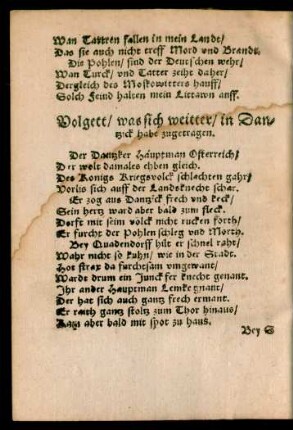 Wan Tattren fallen in mein Landt/
Das sie auch nicht treff Mord vnd Brandt.
Die Pohlen/ sind der Deutschen wehr/
Wan Turck/ vnd Tatter zeiht daher/
Dergleich des Moskowitters hauff/
Solch Feind halten mein Littawn auff.
Volgett/ was sich weitter/ in Dan-
tzick habe zugetragen.
Der Dantzker Hauptman Osterreich/
Der wolt damales ehben gleich.
Des Konigs Kriegsvolck schlachten gahr/
Vorlis sich auff der Landsknecht schar.
Er zog aus Dantzick frech vnd keck/
Sein hertz ward aber bald zum fleck.
Dorft mit seim volck nicht rucken forth/
Er furcht der Pohlen schleg vnd Morth.
Bey Quadendorff hilt er schnel raht/
Wahr nicht so kuhn/ wie in der Stadt.
Hot strax da furchtsam vmgewant/
Warde drum ein Junckfer knecht genant.
Ihr ander Hauptman Lemke gnant/
Der hat sich auch gantz frech ermant.
Er ganz stoltz zum Thor hinaus/
aber bald mit spot zu haus.
Bey